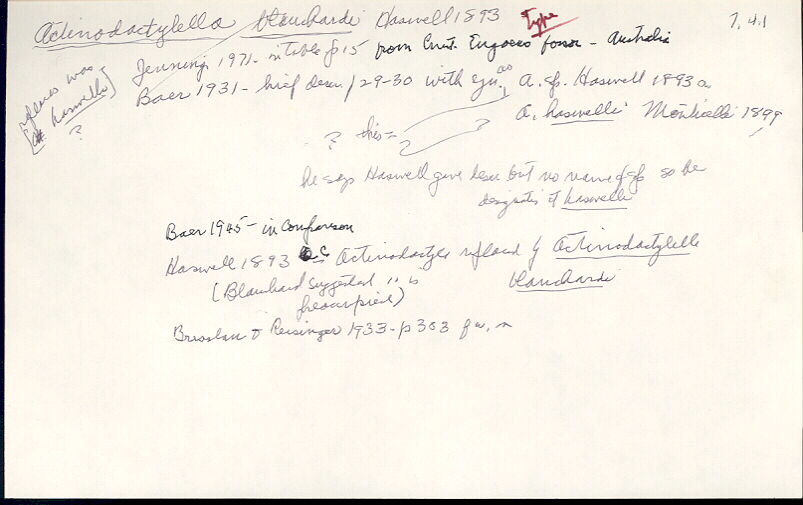 Actinodactylella blanchardi Haswell 1893 Type 7.4.1
Jennings 1971 - in table p 15 from Crust. Engaeus fossor - Australia
Baer 1931 - brief descr / 29-30 with syn. as A. sp. Haswell 1893 a
A. haswelli Monticelli 1899
? this = ?
he says Haswell gave descr but no name of sp so he
designates it haswelli
was
haswelli
?
Baer 1945 - in comparison
Haswell 1893 as Actinodactyla replaced by Actinodactylella
(Blanchard suggested " is blanchardi
preoccupied)
Bresslau & Reisinger 1933 - p 303